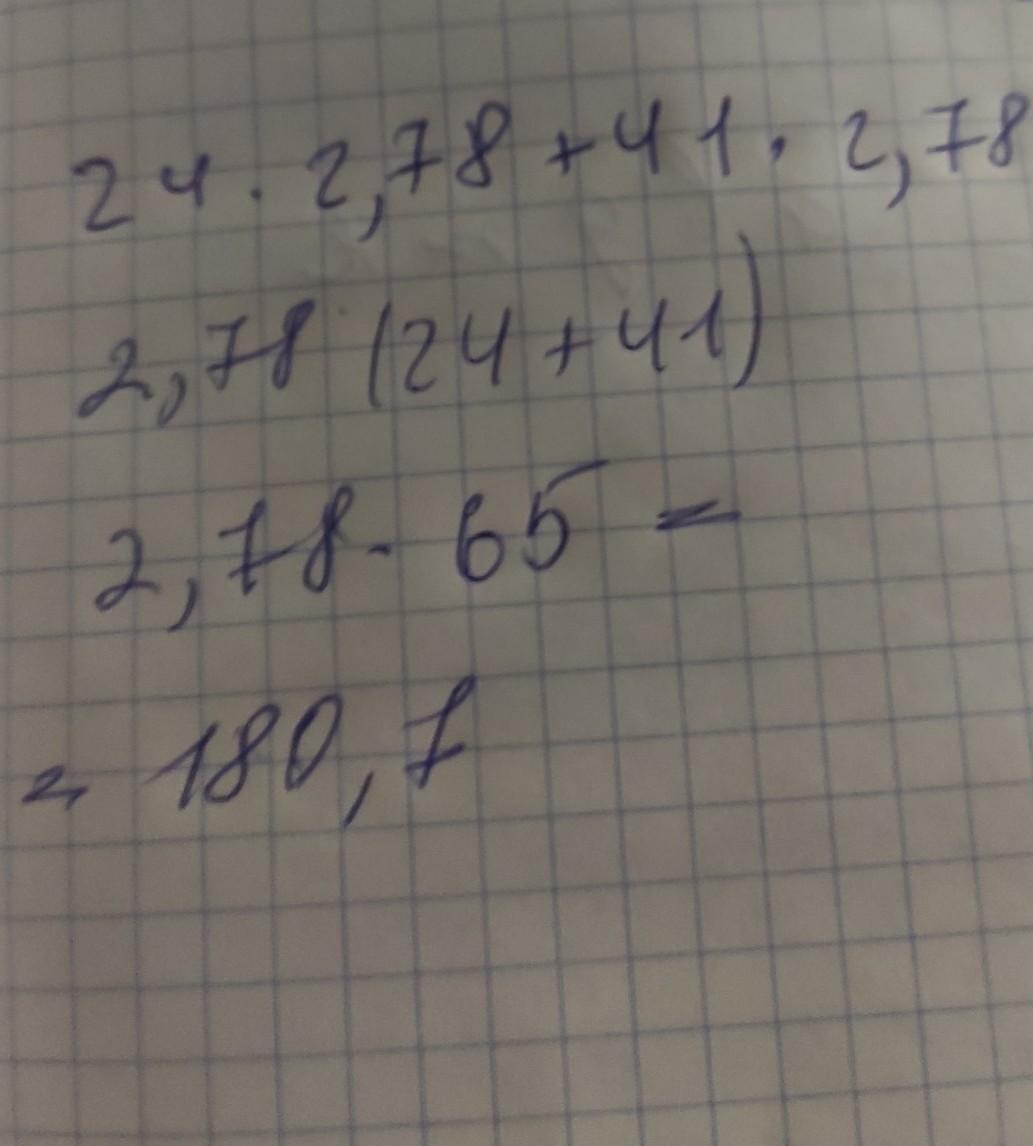 24 · 2,78 + 41 · 2,78
2,78 (24 + 41)
2,78 · 65 =
= 180,7